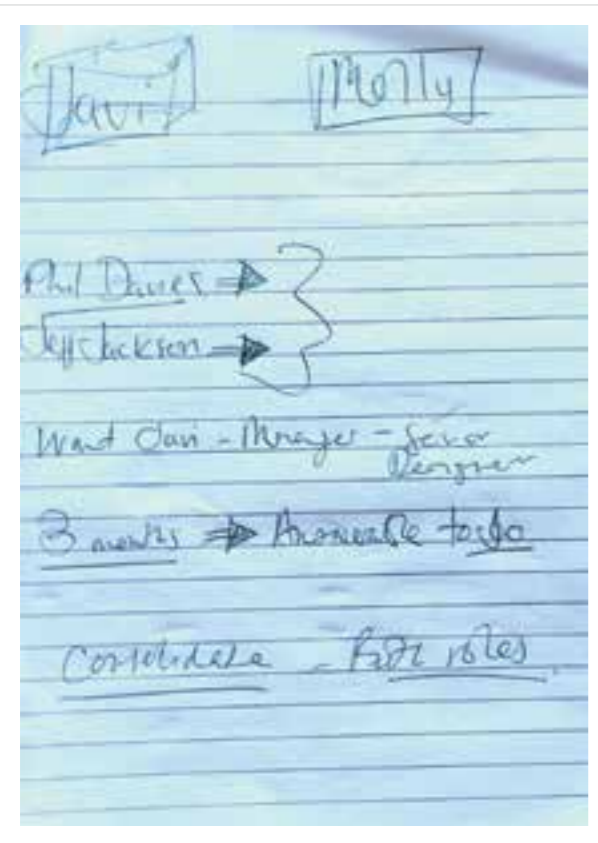 Davi Molly
Phil Davies
Jeff Jackson
Want Davi - Manager - Senior
Designer
3 months Answerable to Jo
Consolidate - Both roles